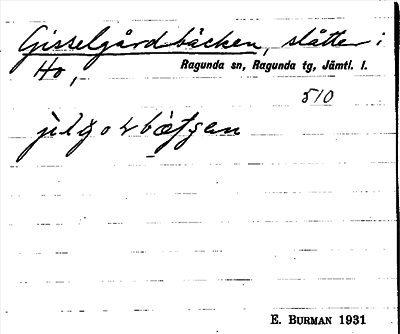 Gisselgårdbäcken, slåtter i
Ho,
Ragunda sn, Ragunda tg, Jämtl. l.
510
E. BURMAN 1931